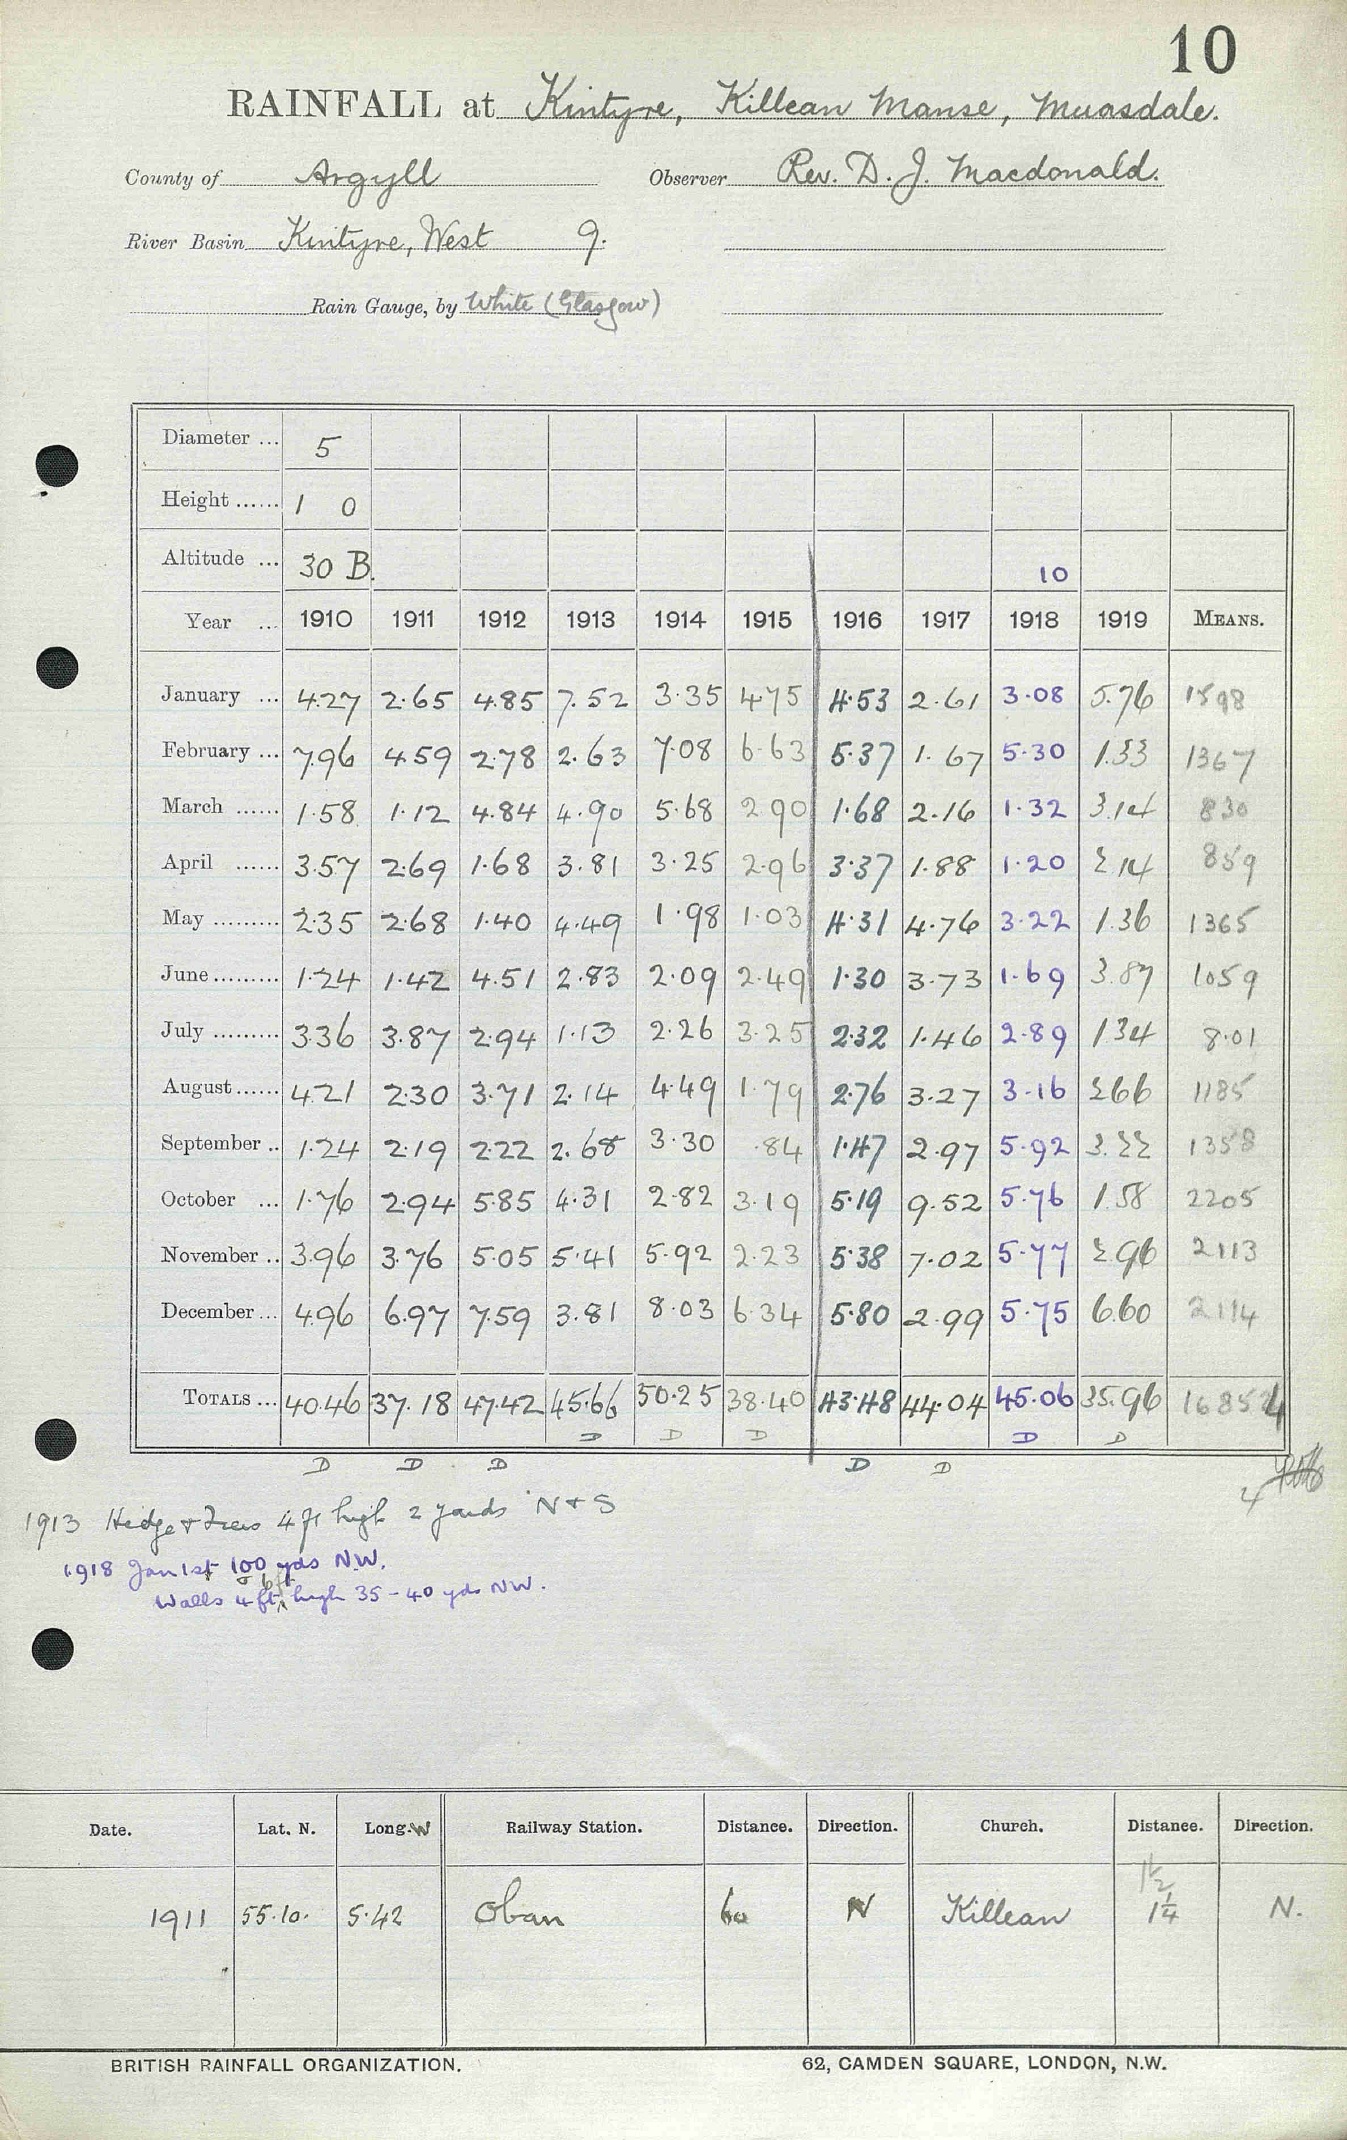 10
RAINFALL at Kintyre, Killean Manse, Muasdale.
County of Argyll Observer Rev. D. J. Macdonald.
River Basin Kintyre, West 9.
Rain Gauge, by White (Glasgow)
Diameter ... 5
Height ...... 1 0
Altitude ... 30 B. 10
Year ... 1910 1911 1912 1913 1914 1915 1916 1917 1918 1919 MEANS.
January ... 4.27 2.65 4.85 7.52 3.35 4.75 4.53 2.61 3.08 5.76 1598
February ... 7.96 4.59 2.78 2.63 7.08 6.63 5.37 1.67 5.30 1.33 1367
March ...... 1.58 1.12 4.84 4.90 5.68 2.90 1.68 2.16 1.32 3.14 830
April ...... 3.57 2.69 1.68 3.81 3.25 2.96 3.37 1.88 1.20 2.14 859
May ......... 2.35 2.68 1.40 4.49 1.98 1.03 4.31 4.76 3.22 1.36 1365
June ......... 1.24 1.42 4.51 2.83 2.09 2.49 1.30 3.73 1.69 3.87 1059
July ......... 3.36 3.87 2.94 1.13 2.26 3.25 2.32 1.46 2.89 1.34 8.01
August ...... 4.21 2.30 3.71 2.14 4.49 1.79 2.76 3.27 3.16 2.66 1185
September .. 1.24 2.19 2.22 2.68 3.30 .84 1.47 2.97 5.92 3.22 1358
October ... 1.76 2.94 5.85 4.31 2.82 3.19 5.19 9.52 5.76 1.58 2205
November .. 3.96 3.76 5.05 5.41 5.92 2.23 5.38 7.02 5.77 2.96 2113
December ... 4.96 6.97 7.59 3.81 8.03 6.34 5.80 2.99 5.75 6.60 2114
TOTALS ... 40.46 37.18 47.42 45.66 50.25 38.40 43.48 44.04 45.06 35.96 16854
D D D D D D D D D D
4
1913 Hedge & Trees 4 ft high 2 yards N & S
1918 Jan 1st 100 yds N.W.
Walls 4 ft & 6 ft high 35-40 yds NW.
Date. Lat. N. Long. W Railway Station. Distance. Direction. Church. Distance. Direction.
1½
1911 55.10. 5.42 Oban 60 N Killean 1¼ N.
BRITISH RAINFALL ORGANIZATION. 62, CAMDEN SQUARE, LONDON, N.W.